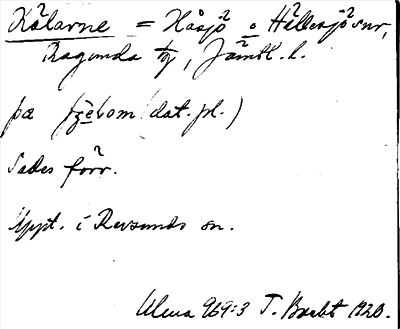 Kälarne = Håsjö o Hällesjö snr,
Ragunda tg, Jämtl. l.
pa (dat. pl.)
Sades förr.
Uppt. i Revsunds sn.
Ulma 969:3 T. Bucht 1920.